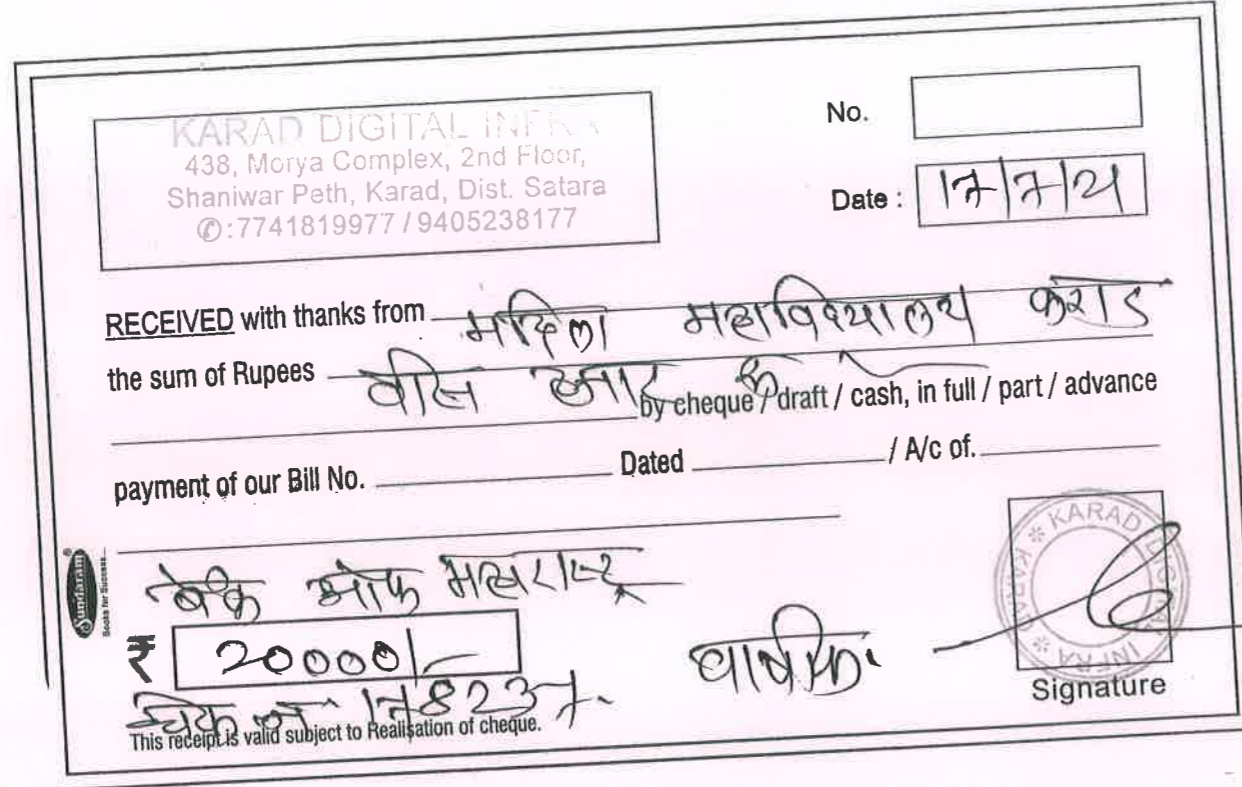 KARAD DIGITAL INFRA
438, Morya Complex, 2nd Floor,
Shaniwar Peth, Karad, Dist. Satara
✆:7741819977 / 9405238177
No.
Date : 17/7/21
RECEIVED with thanks from महिला महाविद्यालय कराड
the sum of Rupees वीस हजार
by cheque / draft / cash, in full / part / advance
payment of our Bill No. Dated / A/c of.
Sundaram
Books for Success...
बँक ऑफ महाराष्ट्र
₹ 20000/-
वार्षिक
चेक नं 178237.
This receipt is valid subject to Realisation of cheque.
KARAD DIGITAL INFRA
Signature